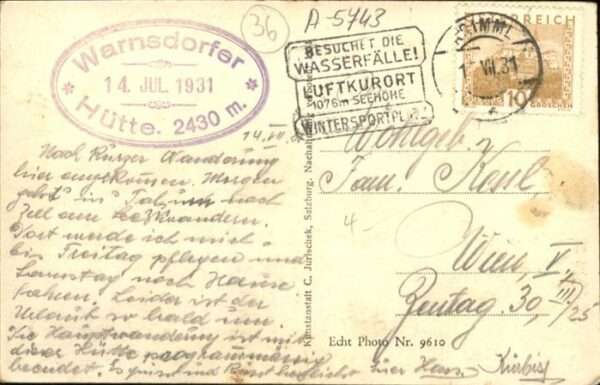 36
A-5743
Warnsdorfer
14. JUL. 1931
Hütte. 2430 m.
BESUCHET DIE
WASSERFÄLLE!
LUFTKURORT
1076m SEEHÖHE
WINTERSPORTPL
KRIMML
VII.31
ÖSTERREICH
10 GROSCHEN
14. VII.
Nach kurzer Wanderung
hier angekommen. Morgen
geht's in's Tal und nach
Zell am See wandern.
Dort werde ich mich
bis Freitag pflegen und
Samstag nach Hause
fahren. Leider ist der
Urlaub so bald um.
Die Hauptwanderung ist mit
dieser Hütte programmässig
beendet. Es grüsst und herzlichst Euer Hans Kürbis
Wohlgeb.
Fam. Kessl
4-
Wien, V.,
Zentag. 30, III/25
Kunstanstalt C. Jurischek, Salzburg.
Echt Photo Nr. 9610